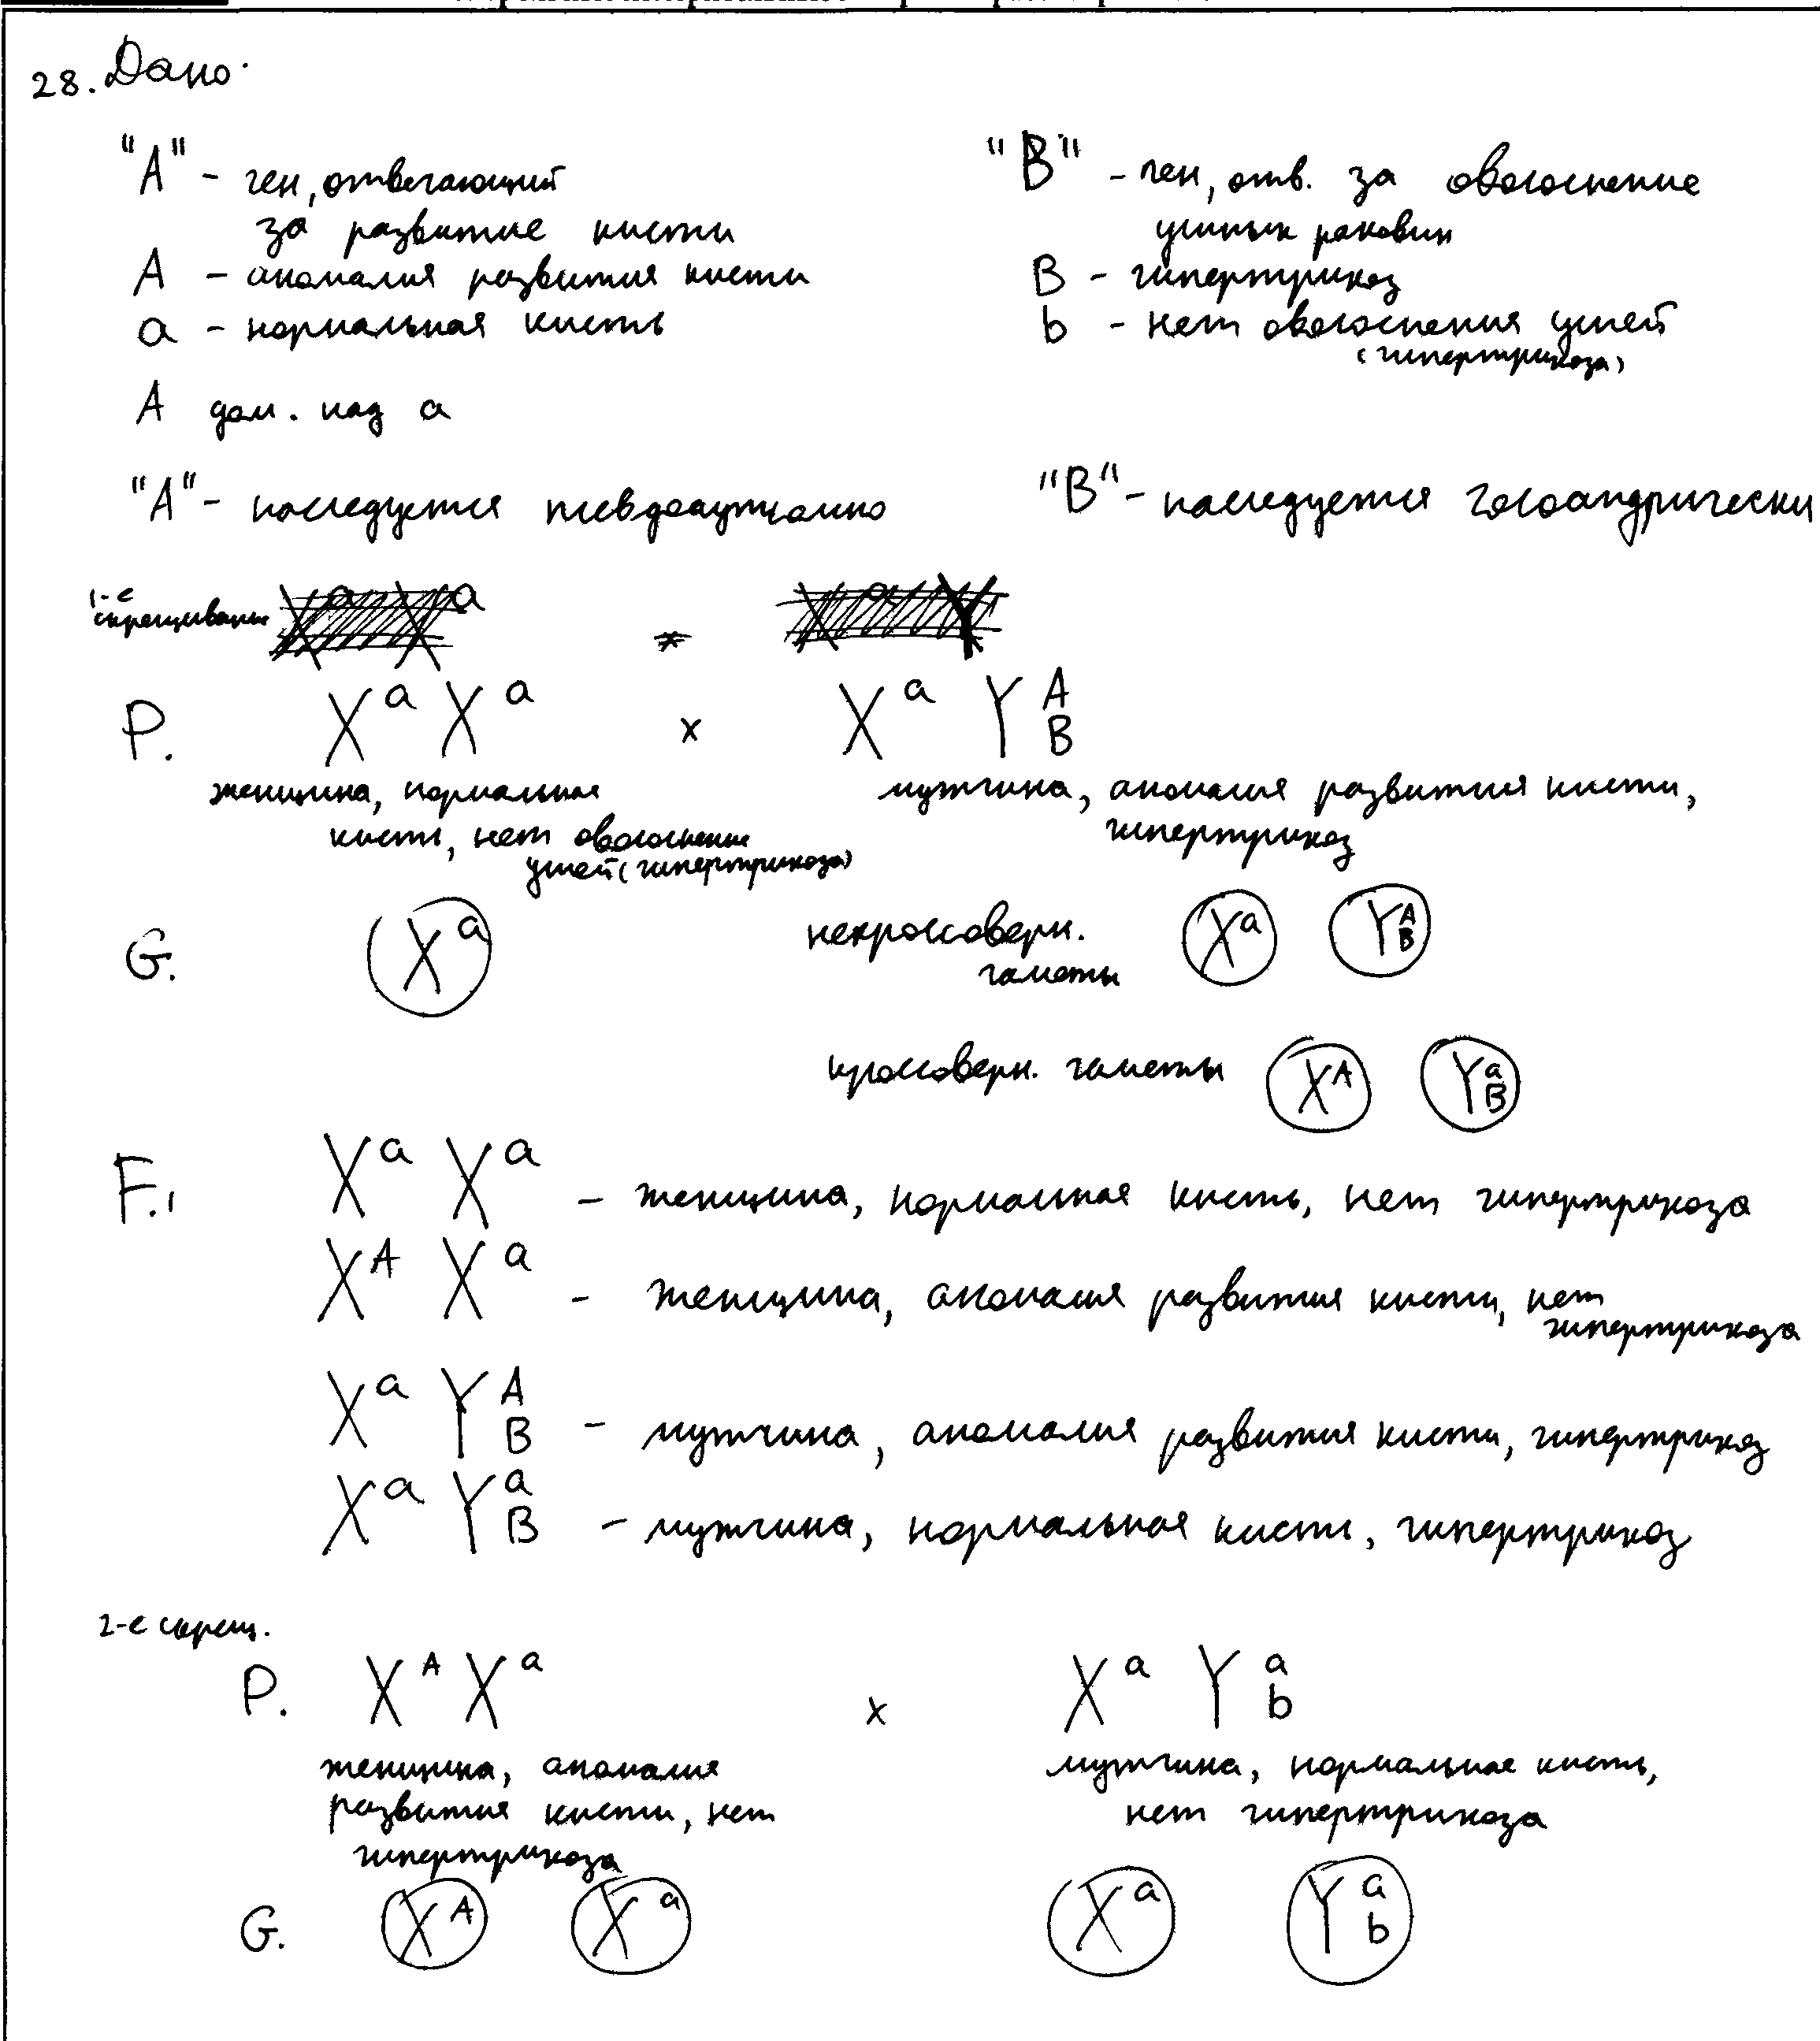 28. Дано:
"А" - ген, отвечающий
за развитие кисти
А - аномалия развития кисти
а - нормальная кисть
А дом. над а
"А" - наследуется псевдоаутосомно
"В" - ген, отв. за оволоснение
ушных раковин
В - гипертрихоз
b - нет оволоснения ушей
(гипертрихоза)
"В" - наследуется голоандрически
1-е
скрещивание
P. XᵃXᵃ x XᵃYᴬB
женщина, нормальная
кисть, нет оволоснение
ушей (гипертрихоза)
мужчина, аномалия развития кисти,
гипертрихоз
G. Xᵃ некроссоверн. гаметы Xᵃ YᴬB
кроссоверн. гаметы Xᴬ YᵃB
F.1 XᵃXᵃ - женщина, нормальная кисть, нет гипертрихоза
XᴬXᵃ - женщина, аномалия развития кисти, нет
гипертрихоза
XᵃYᴬB - мужчина, аномалия развития кисти, гипертрихоз
XᵃYᵃB - мужчина, нормальная кисть, гипертрихоз
2-е скрещ.
P. XᴬXᵃ x XᵃYᵃb
женщина, аномалия
развития кисти, нет
гипертрихоза
мужчина, нормальная кисть,
нет гипертрихоза
G. Xᴬ Xᵃ Xᵃ Yᵃb